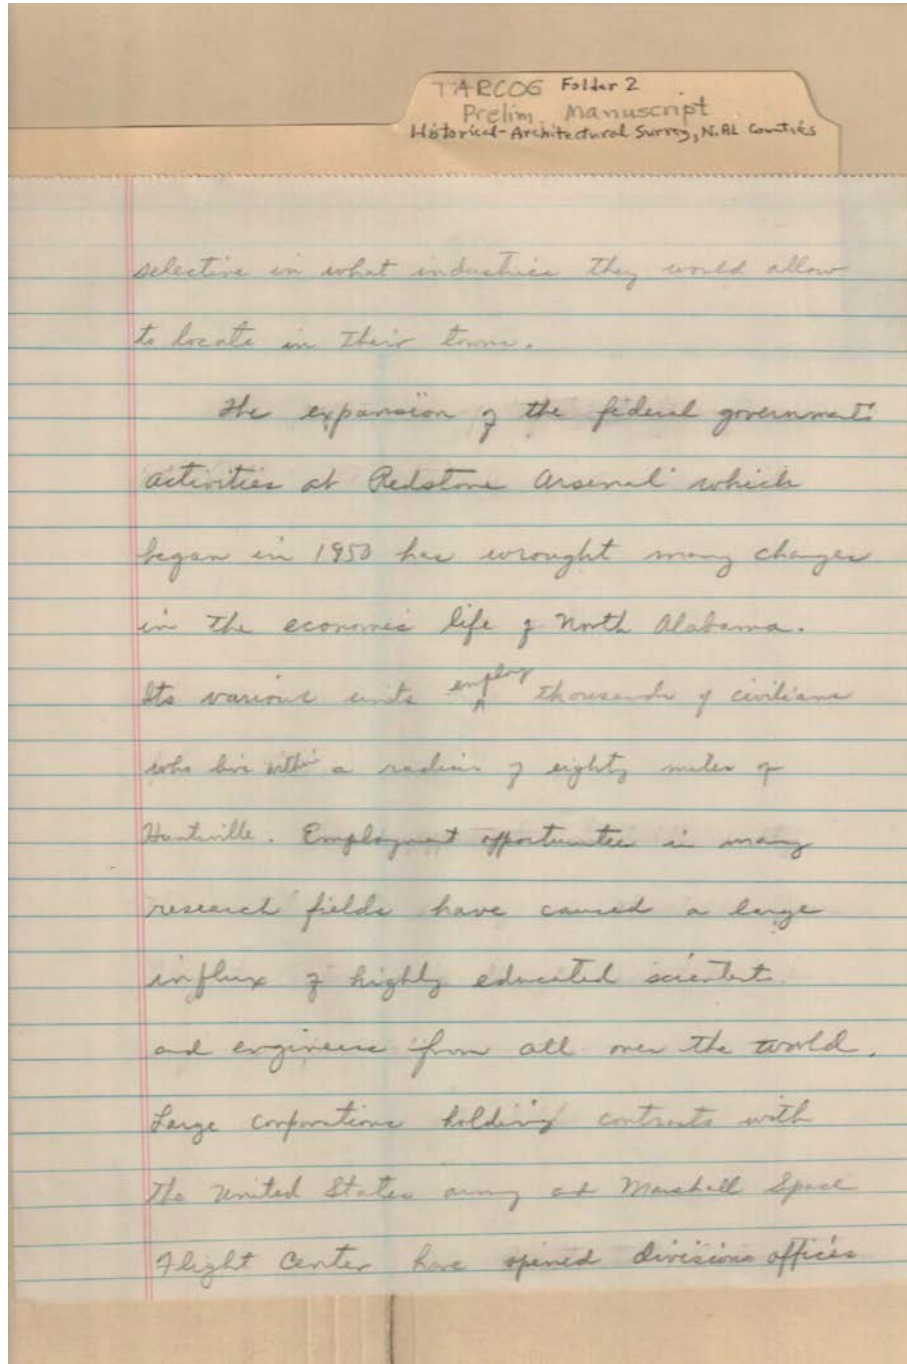 TARCOG Folder 2
Prelim. Manuscript
Historical-Architectural Survey, N. AL Counties
selective in what industries they would allow
to locate in their towns.
The expansion of the federal government's
activities at Redstone Arsenal which
began in 1950 has wrought many changes
in the economic life of North Alabama.
Its various units employ thousands of civilians
who live within a radius of eighty miles of
Huntsville. Employment opportunities in many
research fields have caused a large
influx of highly educated scientist
and engineers from all over the world.
Large corporations holding contracts with
the United States army at Marshall Space
Flight Center have opened divisions offices